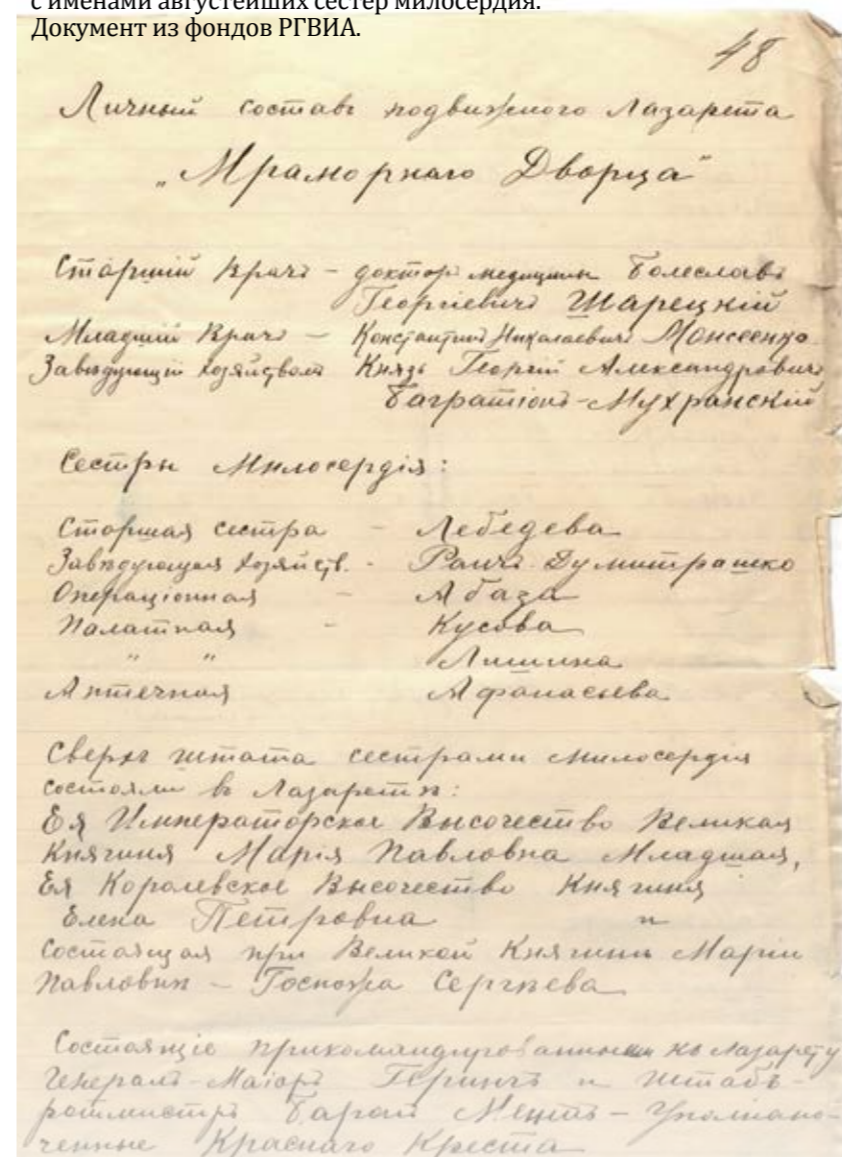 с именами августейших сестёр милосердия.
Документ из фондов РГВИА.
48
Личный составъ подвижного Лазарета
„Мраморнаго Дворца“
Старшій Врачъ – докторъ медицины Болеславъ
Георгіевичъ Шарецкій
Младшій Врачъ – Константинъ Николаевичъ Моисеенко
Завѣдующій хозяйствомъ Князь Георгій Александровичъ
Багратіонъ-Мухранскій
Сестры Милосердія:
Старшая сестра – Лебедева
Завѣдующая хозяйств. - Раичъ-Думитрашко
Операціонная – Абаза
Палатная – Кусова
„ „ Лишина
Аптечная Афанасьева
Сверхъ штата сестрами милосердія
состояли въ Лазаретѣ:
Ея Императорское Высочество Великая
Княгиня Марія Павловна Младшая,
Ея Королевское Высочество Княгиня
Елена Петровна и
Состоящая при Великой Княгинѣ Маріи
Павловнѣ – Госпожа Сергѣева
Состоящіе прикомандированными къ Лазарету
Генералъ-Маіоръ Герингъ и штабъ-
ротмистръ Баронъ – Уполномо-
ченные Краснаго Креста